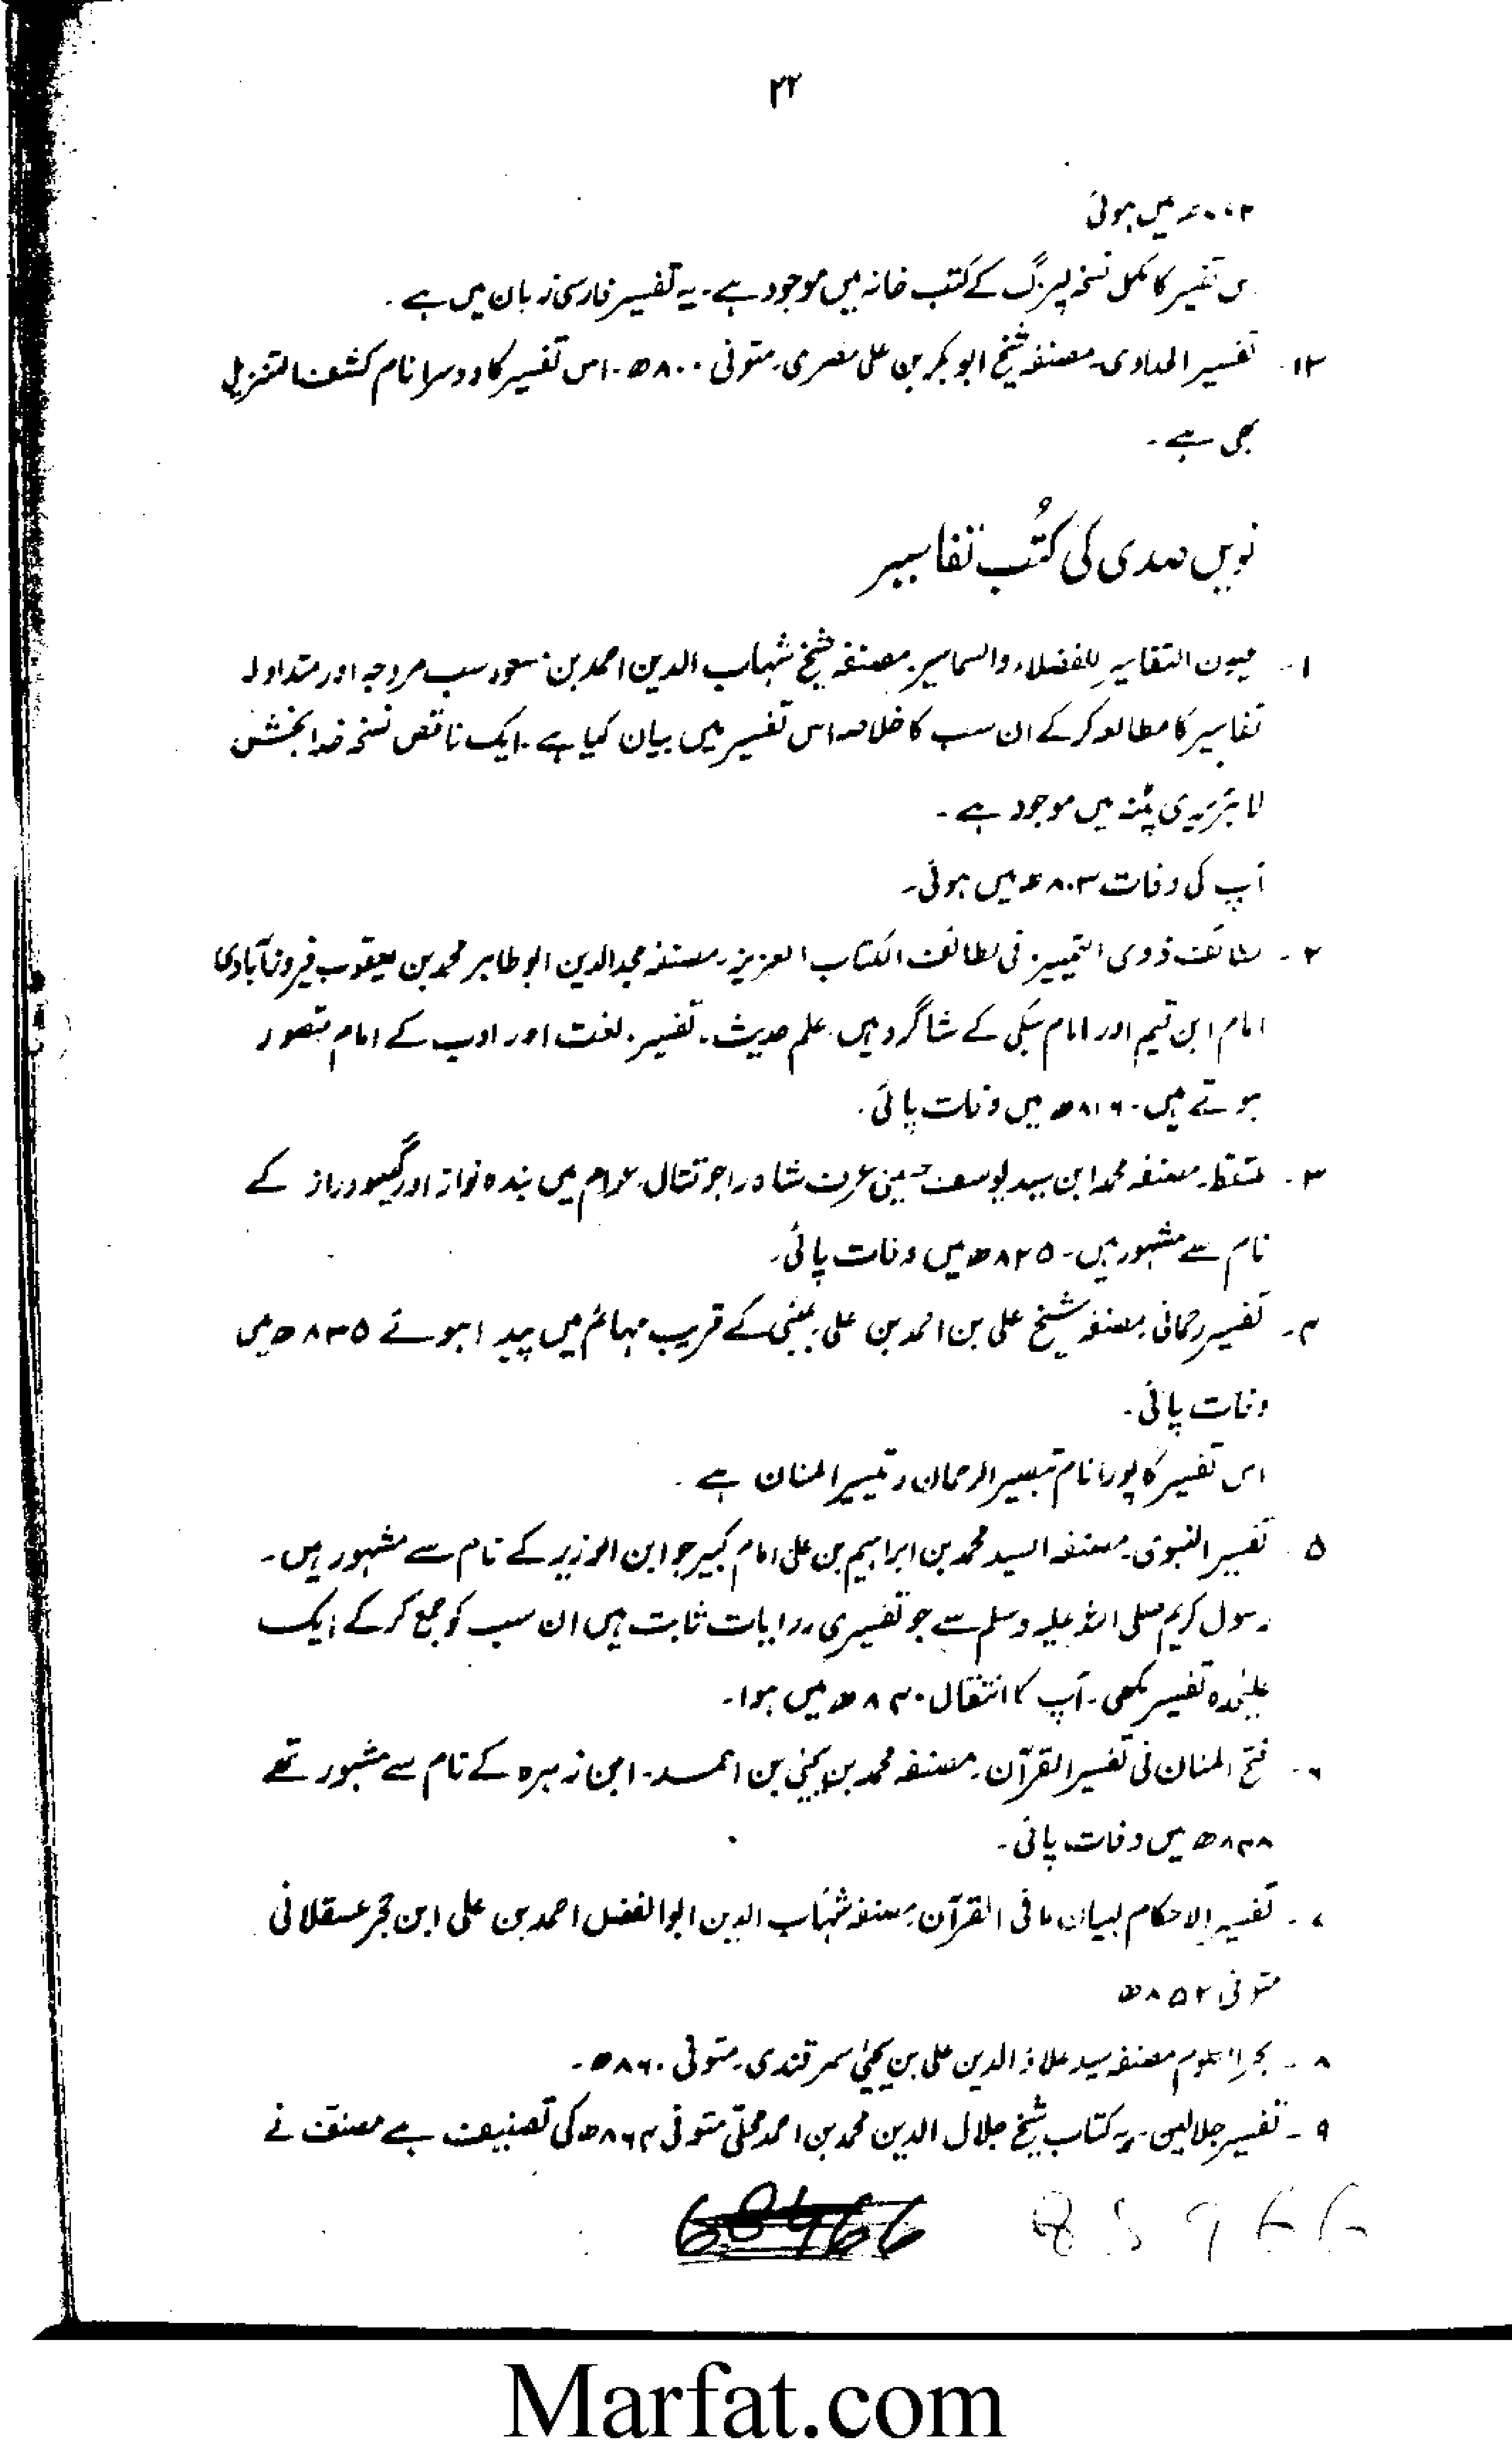 ۲۲
میں ہوئی
س تفسیر کا مکمل نسخہ لپزگ کے کتب خانہ میں موجود ہے۔ یہ تفسیر فارسی زبان میں ہے۔
۱۲۔ تفسیر الحدادی۔ مصنفہ شیخ ابوبکر بن علی مصری۔ متوفی ۸۰۰ھ۔ اس تفسیر کا دوسرا نام کشف التنزیل
بھی ہے۔
نویں صدی کی کتُب تفاسیر
۱۔ عیون التفاسیر للفضلاء والسماسیر۔ مصنفہ شیخ شہاب الدین احمد بن مسعود سب مروجہ اور متداولہ
تفاسیر کا مطالعہ کرکے ان سب کا خلاصہ اس تفسیر میں بیان کیا ہے۔ ایک ناقص نسخہ خدا بخش
لائبریری پٹنہ میں موجود ہے۔
آپ کی وفات ۸۰۳ء میں ہوئی۔
۲۔ ذوی التمییز فی لطائف الکتاب العزیز۔ مصنفہ مجد الدین ابو طاہر محمد بن یعقوب فیروزآبادی
امام ابن قیم اور امام سبکی کے شاگرد ہیں۔ علم حدیث۔ تفسیر۔ لغت اور ادب کے امام متصور
ہوتے ہیں۔ ۸۱۶ھ میں وفات پائی۔
۳۔ ملتقط۔ مصنفہ محمد ابن سید یوسف حسینی عرف شاہ راجو قتال۔ عوام میں بندہ نواز اور گیسو دراز کے
نام سے مشہور ہیں۔ ۸۲۵ھ میں وفات پائی۔
۴۔ تفسیر رحمانی۔ مصنفہ شیخ علی بن احمد بن علی۔ بمبئی کے قریب مہائم میں پیدا ہوئے ۸۳۵ھ میں
وفات پائی۔
اس تفسیر کا پورا نام تبصیر الرحمان و تیسیر المنان ہے۔
۵۔ تفسیر النبوی۔ مصنفہ السید محمد بن ابراہیم بن علی امام کبیر جو ابن الوزیر کے نام سے مشہور ہیں۔
رسول کریم صلی اللہ علیہ وسلم سے جو تفسیری روایات ثابت ہیں ان سب کو جمع کرکے ایک
علیٰحدہ تفسیر لکھی۔ آپ کا انتقال ۸۴۰ھ میں ہوا۔
۶۔ فتح المنان فی تفسیر القرآن۔ مصنفہ محمد بن یحییٰ بن احمد۔ ابن زہرہ کے نام سے مشہور تھے
۸۴۸ھ میں وفات پائی۔
۷۔ تفسیر الاحکام لبیان ما فی القرآن۔ مصنفہ شہاب الدین ابوالفضل احمد بن علی ابن حجر عسقلانی
متوفی ۸۵۲ھ
۸۔ بحر العلوم مصنفہ سید علاؤ الدین علی بن یحییٰ سمرقندی۔ متوفی ۸۶۰ھ۔
۹۔ تفسیر جلالین۔ یہ کتاب شیخ جلال الدین محمد بن احمد محلّی متوفی ۸۶۴ھ کی تصنیف ہے مصنف نے
68466 85966
Marfat.com